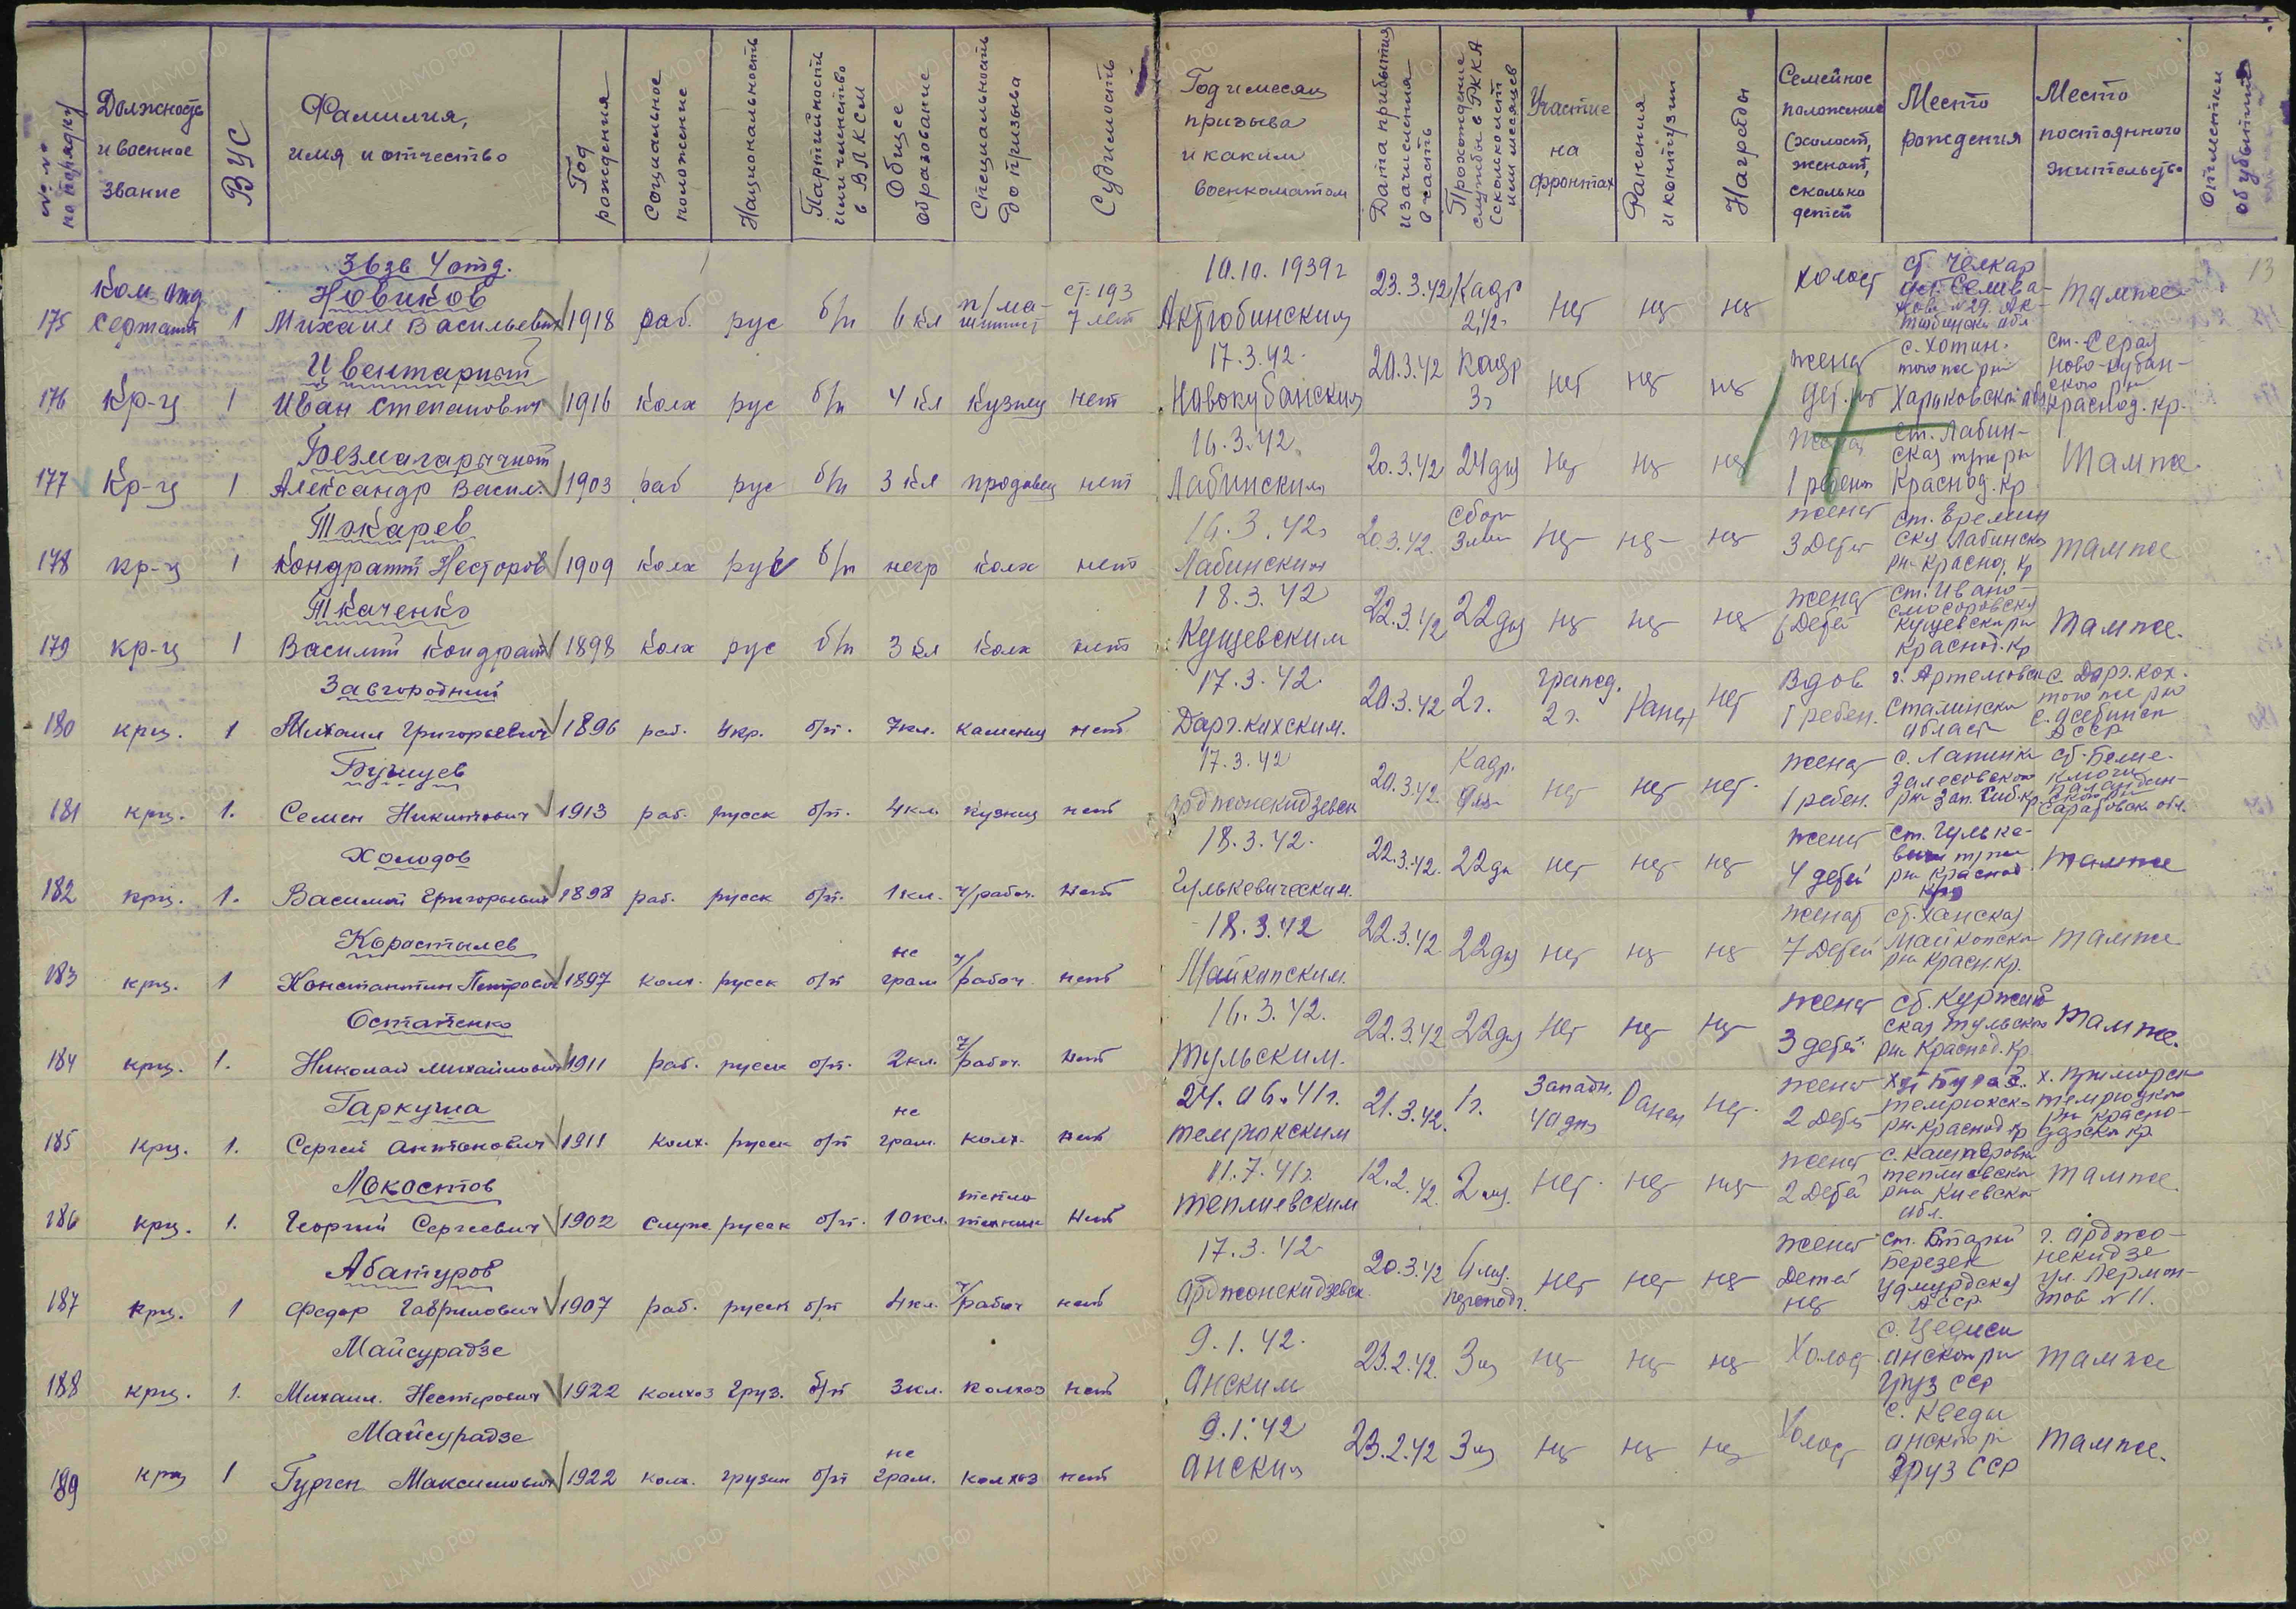 № № по порядку
Должность и военное звание
ВУС
Фамилия, имя и отчество
Год рождения
Социальное положение
Национальность
Партийность или членство в ВЛКСМ
Общее образование
Специальность до призыва
Судимость
Год и месяц призыва и каким военкоматом
Дата прибытия и зачисления в часть
Прохождение службы в РККА (сколько лет или месяцев
Участие на фронтах
Ранения и контузии
Награды
Семейное положение (холост, женат, сколько детей
Место рождения
Место постоянного жительства
Отметки об убытии
13
3 взв 4 отд.
175 Ком. отд сержант 1 Новиков Михаил Васильевич 1918 раб. рус б/п 6 кл п/машинист ст-193 7 лет 10.10.1939г Актюбинским 23.3.42 Кадр 2 1/2 г нет нет нет холост ст. Челкар Актюбинск обл там же
176 кр-ц 1 Цвентарный Иван Степанович 1916 колх рус б/п 4 кл кузнец нет 17.3.42. Новокубанским 20.3.42 Кадр 3г нет нет нет женат дет. нет с. Хотин. того же рн Харьковской обл ст. Серая Ново-Кубанского рн Краснод. кр.
177 Кр-ц 1 Безмагарычный Александр Васил. 1903 раб рус б/п 3 кл продавец нет 16.3.42. Лабинским 20.3.42 24 дня нет нет нет женат 1 ребенок ст. Лабинская того же рн Краснод. кр там же.
178 кр-ц 1 Токарев Кондратий Несторов 1909 колх рус б/п негр колх нет 16.3.42г Лабинским 20.3.42. Сбор 3 мес нет нет нет женат 3 детей ст. Еремин ска Лабинско рн Краснод. кр там же
179 кр-ц 1 Ткаченко Василий Кондрат 1898 колх рус б/п 3 кл колх нет 18.3.42 Кущевским 22.3.42 22 дня нет нет нет женат 6 детей ст. Ивано- Кущевск рн Краснод. кр там же.
180 крц. 1 Завгородний Михаил Григорьевич 1896 раб. укр. б/п. 7 кл. каменщ нет 17.3.42. Дарг.кохским. 20.3.42 2г. гражд. 2г. Ранен нет вдов 1 ребен. г. Артемовск Сталинска область с. Дарг.кох. того же рн с. Осетинск АССР
181 крц. 1. Бузицев Семен Никитович 1913 раб. русск б/п. 4 кл. кузнец нет 17.3.42 Орджоникидзевск 20.3.42. Кадр. нет нет нет. женат 1 ребен. с. Лапинка Залесовского рн Зап. Сиб. кр. Саратовск обл.
182 крц. 1. Холодов Василий Григорьевич 1898 раб. русск б/п. 1 кл. ч/рабоч. нет 18.3.42. Гулькевическим. 22.3.42. 22 дн нет нет нет женат 4 детей ст. Гулькевичи того же рн Краснод кр там же
183 крц. 1 Коростылев Константин Петрович 1897 колх. русск б/п не грам ч/рабоч. нет 18.3.42 Майкопским. 22.3.42. 22 дня нет нет нет женат 7 детей ст. Ханская Майкопски рн Красн. кр. там же
184 крц. 1. Остапенко Николай Михайлович 1911 раб. русск б/п. 2 кл. ч/рабоч. нет 16.3.42. Тульским. 22.3.42 22 дня нет нет нет женат 3 детей ст. Куржипская Тульского рн Краснод. кр. там же.
185 крц. 1. Гаркуша Сергей Антонович 1911 колх. русск б/п не грам. колх. нет 24.06.41г. Темрюкским 21.3.42. 1г. Западн. 40 дня Ранен нет. женат 2 детей Темрюкско рн. Краснод кр х. Приморск Темрюкко рн Краснодарски кр.
186 крц. 1. Локостов Георгий Сергеевич 1902 служ русск б/п. 10 кл. тепло техник нет 11.7.41г. Теплиевским 12.2.42. 2 мц. нет. нет нет женат 2 детей с. Кашперовка Теплиевски рна Киевской обл. там же.
187 крц. 1 Абатуров Федор Гаврилович 1907 раб. русск б/п 4 кл. ч/рабоч нет 17.3.42. Орджоникидзевск 20.3.42 6 мц. переподг. нет нет нет женат детей нет ст. Старый Березек Удмурдская АССР. г. Орджоникидзе ул. Лермонтов № 11.
188 крц. 1. Майсурадзе Михаил. Нестерович 1922 колхоз груз. б/п 3 кл. колхоз нет 9.1.42. Анским 23.2.42. 3 м нет нет нет Холост с. Цедиси анского рн груз ССР там же
189 крц 1 Майсурадзе Гурген Максимович 1922 колх. грузин б/п не грам. колхоз нет 9.1.42 Анским 23.2.42 3 м нет нет нет Холост с. Кведи анского рн груз ССР там же.